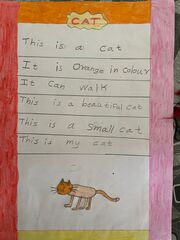 CAT
This is a cat
It is Orange in colour
It Can Walk
This is a beautiful cat
This is a Small cat
This is my cat